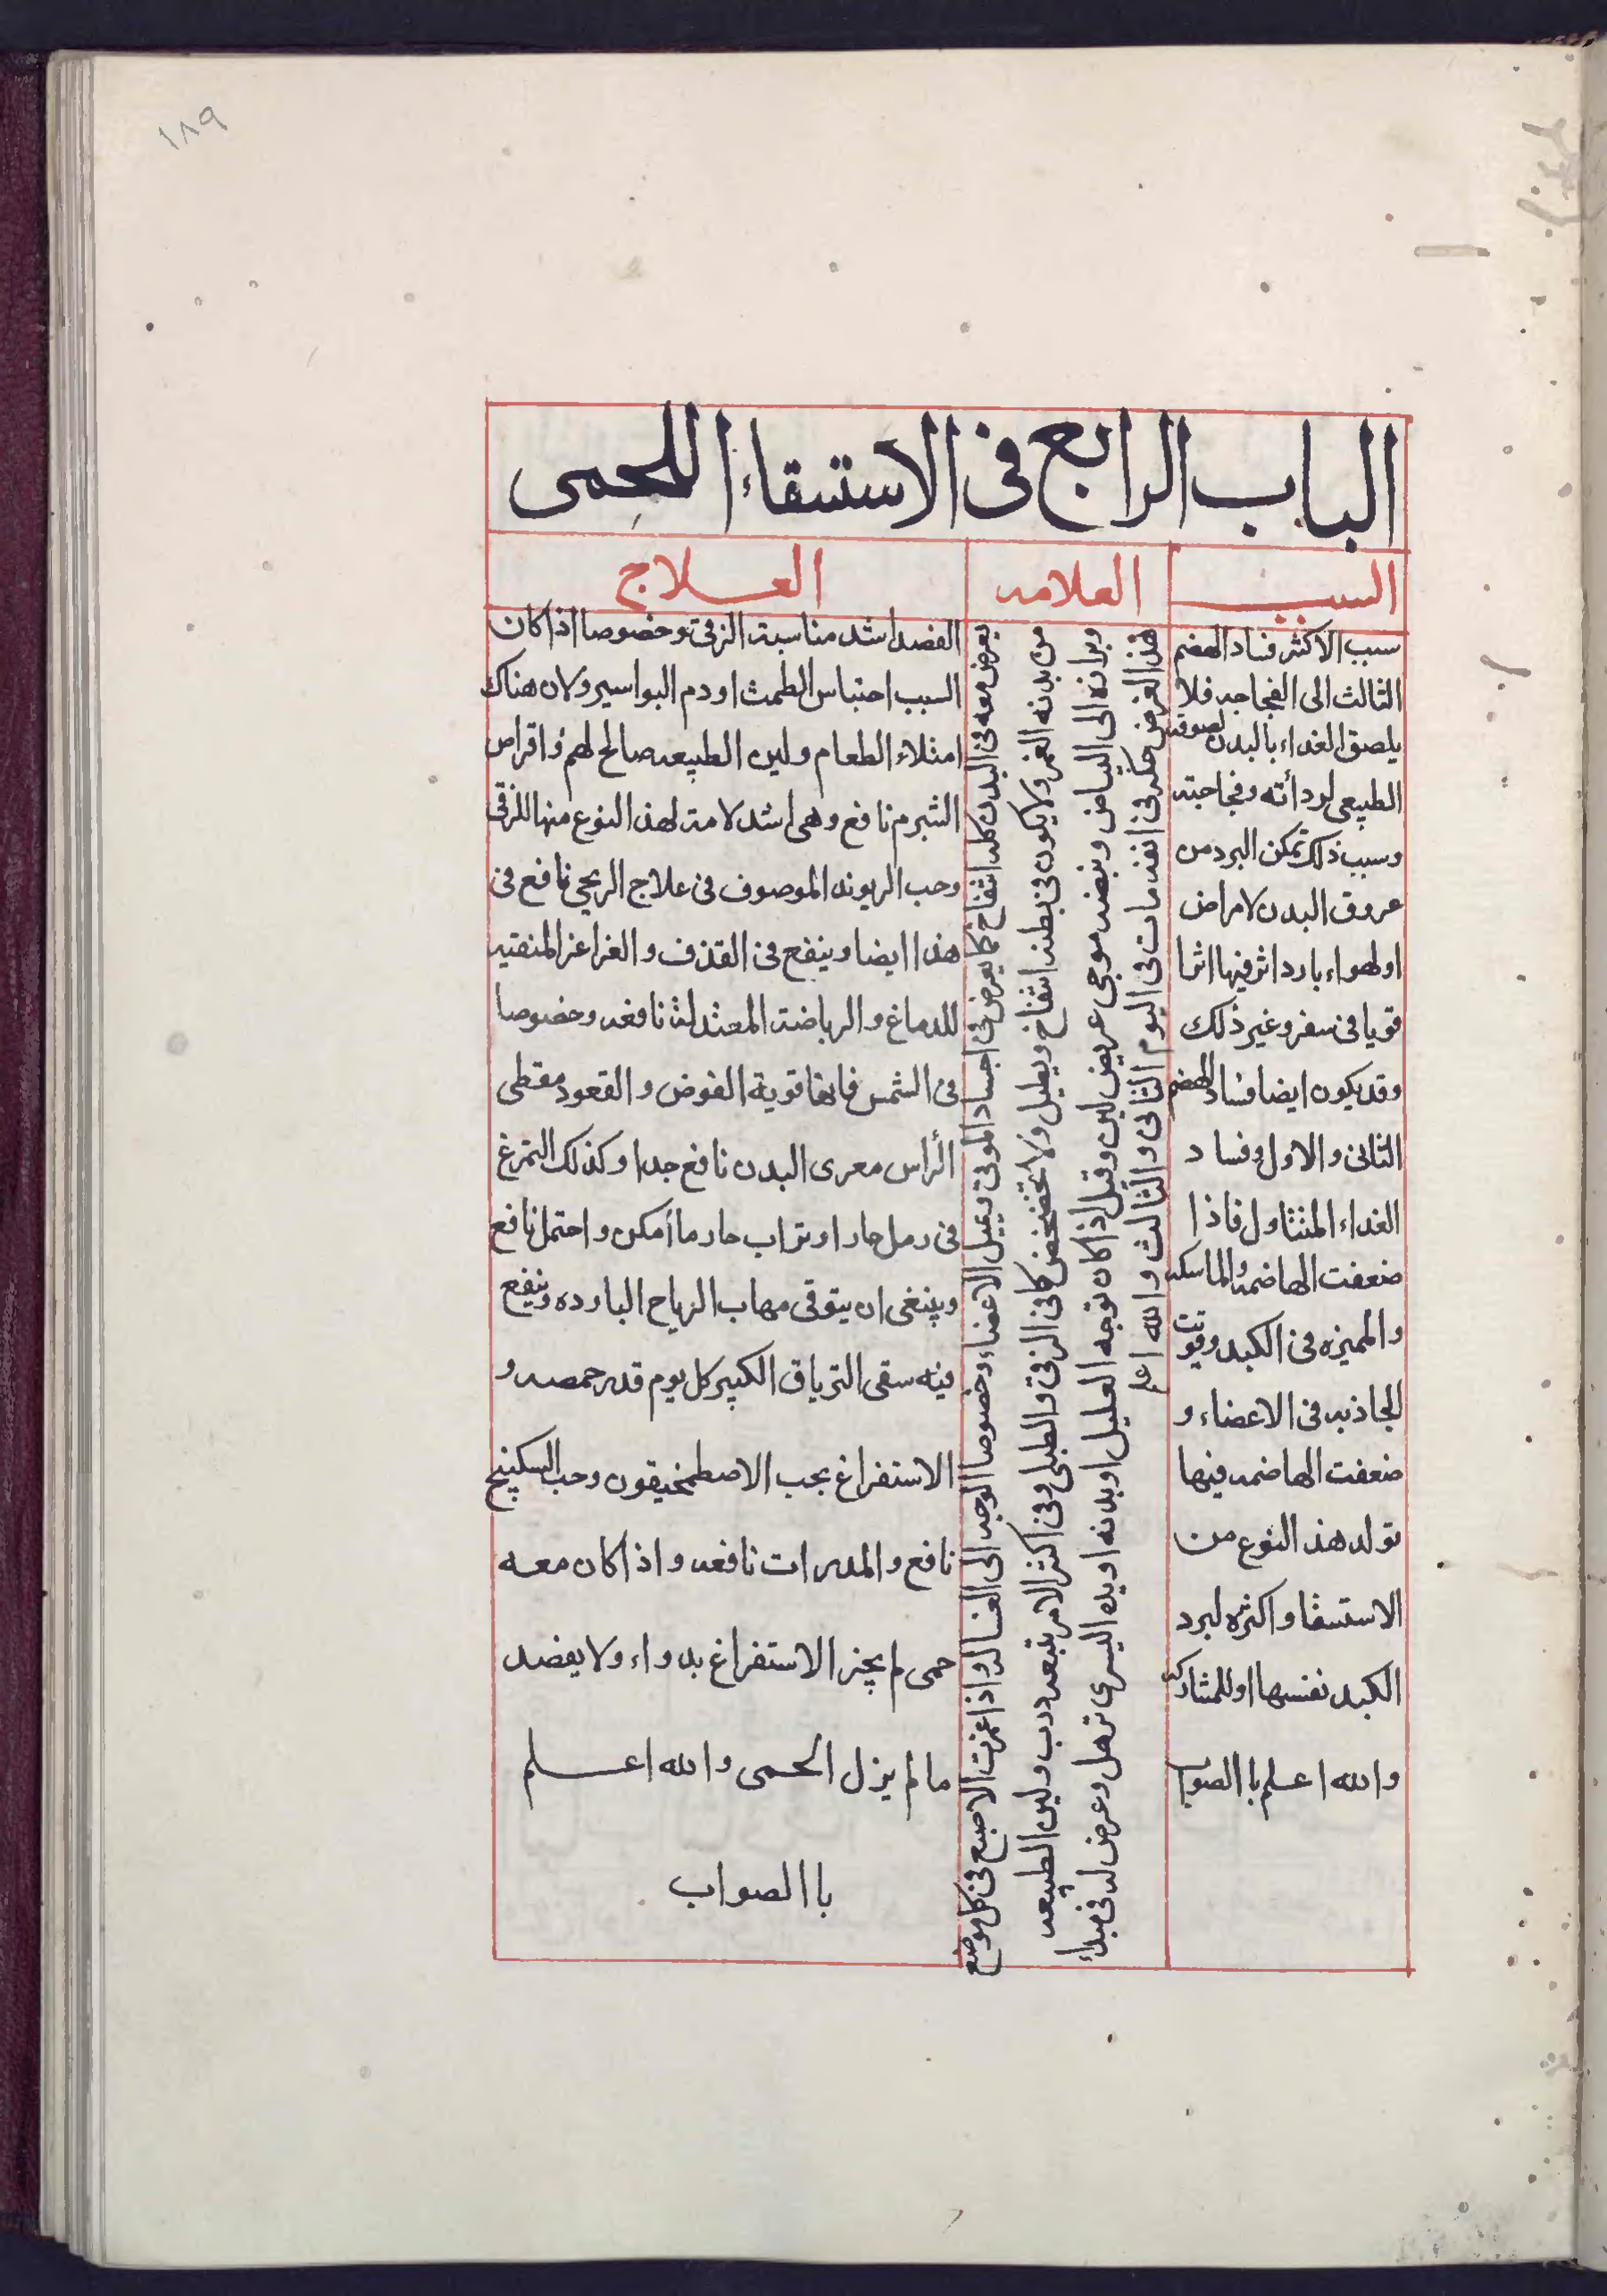 ١٨٩
الباب الرابع فى الاستسقاء اللحمى
السبب
سبب الاكثر فساد الهضم
الثالث الى الفجاجه فلا
يلصق الغداء بالبدن لصوقه
الطبيعى لردأته وفجاجته
وسبب ذلك تمكن البرد من
عروق البدن لامراض
اولهواء بارد اثر فيها اثرا
قويا فى سفر وغير ذلك
وقد يكون ايضا فساد الهضم
الثانى والاول وفساد
الغداء المتناول فاذا
ضعفت الهاضمه والماسكه
والمميزه فى الكبد وقويت
الجاذبه فى الاعضاء و
ضعفت الهاضمه فيها
تولد هذ النوع من
الاستسقا واكثره لبرد
الكبد نفسها اوللمشاركه
والله اعلم باالصواب
العلامه
يعرض معه فى البدن كله انتفاخ كما يعرض فى اجساد الموتى ويميل الاعضاء وخصوصا الوجه الى العسالد واذا غمزت الاصبع فى كل موضع
من بدنه انغمر ولايكون فى بطنه انتفاخ ويطيل ولا تخضخض كما فى الزقى والطبلى وفى اكثر الامر يتبعه درب ولين الطبيعه
وبرازه الى البياض ونبضه موجى عريض لين وقيل اذا كان توجه العليل اوبدنه اويده اليسرى ترهل وعرض له فى مبداء
هذ العرض حكه فى انفه مات فى اليوم الثانى والثالث والله اعلم
العلاج
الفصد اشد مناسبة الزقى وخصوصا اذا كان
السبب احتباس الطمث اودم البواسير ولان هناك
امتلاء الطعام ولين الطبيعه صالح لهم واقراص
الشبرم نافع وهى اشد لامة لهذ النوع منها للزقى
وحب الريوند الموصوف فى علاج الريحى نافع فى
هذا ايضا وينفع فى القذف والغراغز المنقيه
للدماغ والرياضة المعتدلة نافعه وخصوصا
فى الشمس فانها قوية الفوض والقعود مغطى
الرأس معرى البدن نافع جدا وكذلك التمرغ
فى رمل حار اوتراب حار ما أمكن واحتمل نافع
وينبغى ان يتوقى مهاب الرياح البارده وينفع
فيه سقى الترياق الكبير كل يوم قدر حمصه و
الاستفراغ بحب الاصطمخيقون وحب السكبينج
نافع والمدرات نافعه واذا كان معه
حمى لم يجز الاستفراغ بدواء ولا يفصد
مالم يزل الحمى والله اعلم
باالصواب